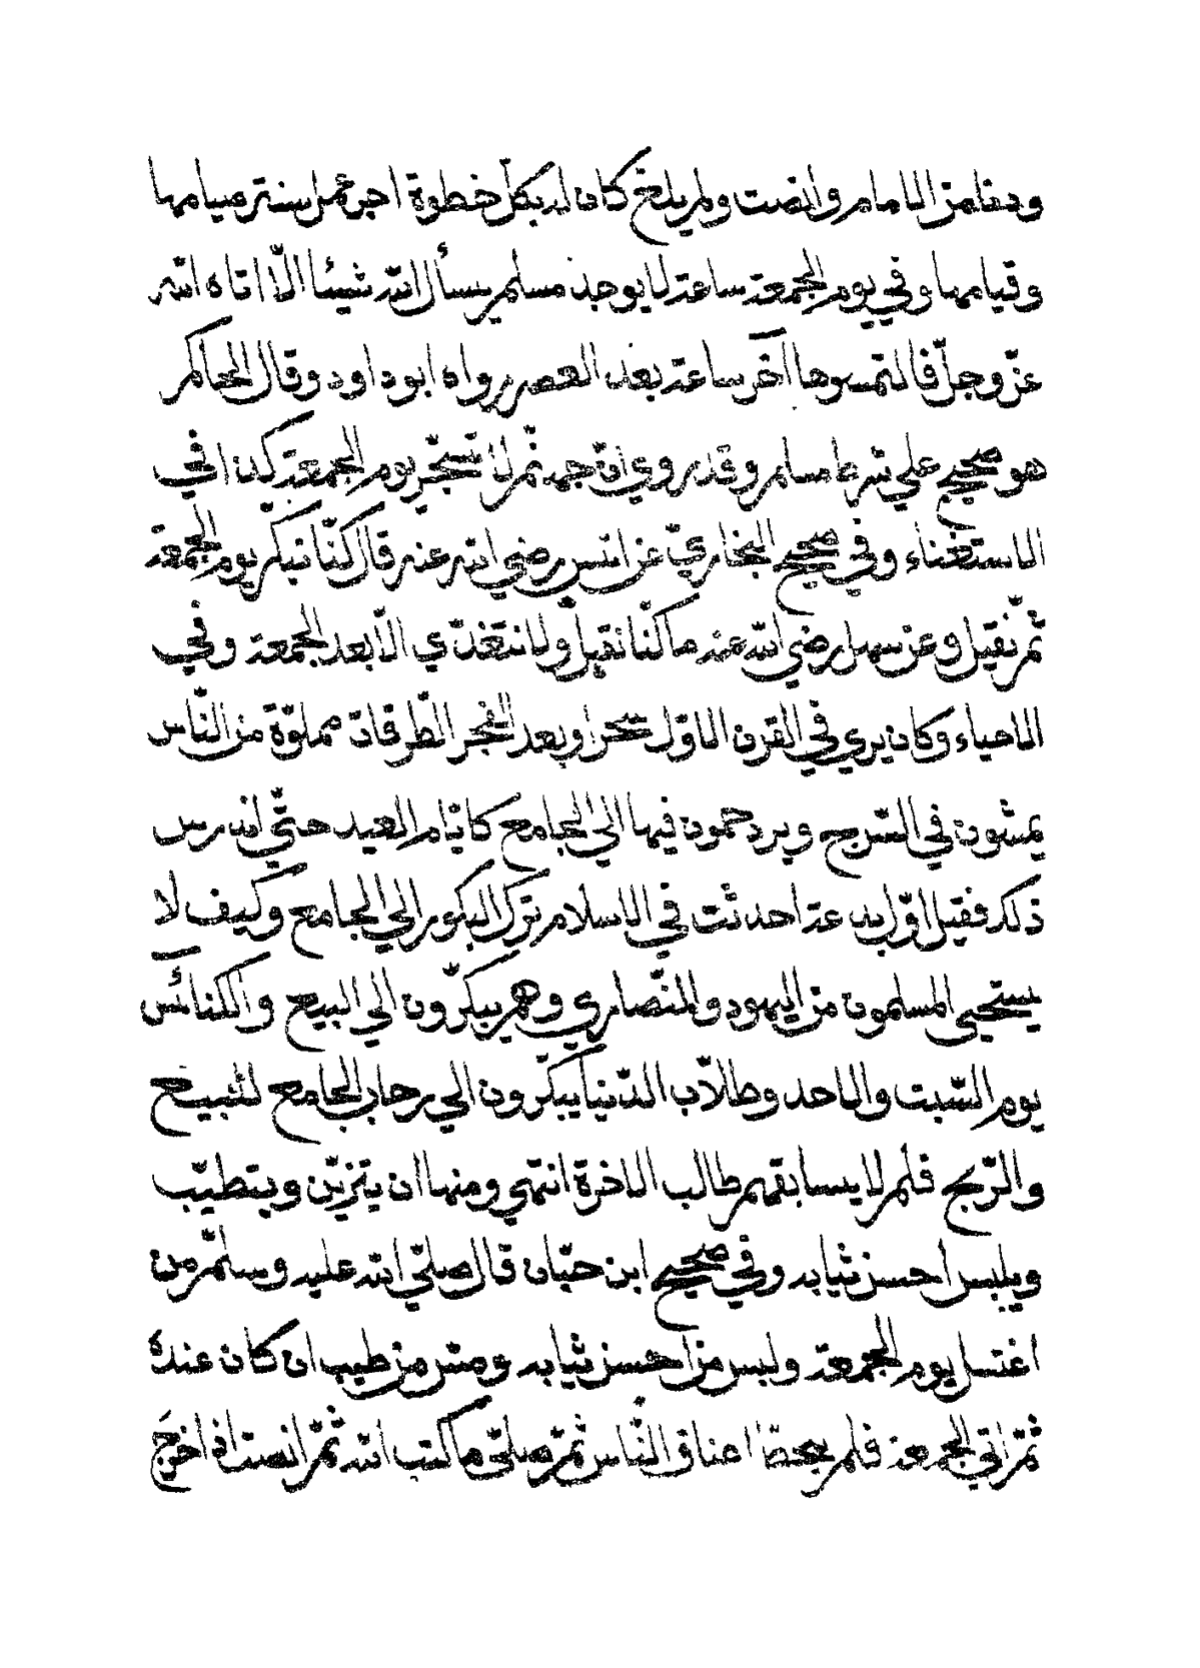 ودنا من الامام وانصت ولم يلغ كان له بكل خطوة اجر عمل سنة صيامها
وقيامها وفي يوم الجمعة ساعة لا يوجد مسلم يسأل الله شيئا الّا اتاه الله
عزّ وجلّ فالتمسوها آخر ساعة بعد العصر رواه ابو داود وقال الحاكم
هو صحيح علي شرط مسلم وقد روي انّ جهنّم لا تسجّر يوم الجمعة كذا في
الاستغناء وفي صحيح البخاريّ عن انس رضي الله عنه قال كنّا نبكّر يوم الجمعة
ثمّ نقيل وعن سهل رضي الله عنه ما كنّا نقيل ولا نتغدّي الّا بعد الجمعة وفي
الاحياء وكان يري في القرن الاوّل سحرا وبعد الفجر الطّرقات مملوّة من النّاس
يمشون في السّرج ويزدحمون فيها الي الجامع كايّام العيد حتّي اندرس
ذلك فقيل اوّل بدعة احدثت في الاسلام ترك البكور الي الجامع وكيف لا
يستحيي المسلمون من اليهود والنّصاري وهم يبكّرون الي البيع والكنائس
يوم السّبت والاحد وطلّاب الدّنيا يبكّرون الي رحاب الجامع للبيع
والرّبح فلم لا يسابقهم طالب الاخرة انتهي ومنها ان يتزيّن ويتطيّب
ويلبس احسن ثيابه وفي صحيح ابن حبّان قال صلّي الله عليه وسلّم من
اغتسل يوم الجمعة ولبس من احسن ثيابه ومسّ من طيب ان كان عنده
ثمّ اتي الجمعة فلم يتخطّ اعناق النّاس ثمّ صلّي ما كتب الله ثمّ انصت اذا خرج